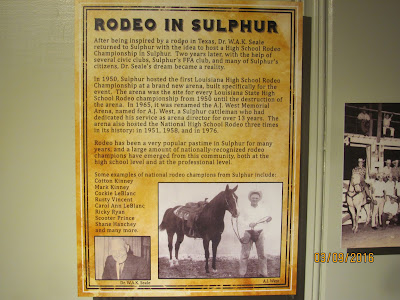 RODEO IN SULPHUR
After being inspired by a rodeo in Texas, Dr. W.A.K. Seale
returned to Sulphur with the idea to host a High School Rodeo
Championship in Sulphur. Two years later, with the help of
several civic clubs, Sulphur's FFA club, and many of Sulphur's
citizens, Dr. Seale's dream became a reality.
In 1950, Sulphur hosted the first Louisiana High School Rodeo
Championship at a brand new arena, built specifically for the
event. The arena was the site for every Louisiana State High
School Rodeo championship from 1950 until the destruction of
the arena. In 1965, it was renamed the A.J. West Memorial
Arena, named for A.J. West, a Sulphur cattleman who had
dedicated his service as arena director for over 13 years. The
arena also hosted the National High School Rodeo three times
in its history; in 1951, 1958, and in 1976.
Rodeo has been a very popular pastime in Sulphur for many
years, and a large amount of nationally-recognized rodeo
champions have emerged from this community, both at the
high school level and at the professional level.
Some examples of national rodeo champions from Sulphur include:
Cotton Kinney
Mark Kinney
Cookie LeBlanc
Rusty Vincent
Carol Ann LeBlanc
Ricky Ryan
Scooter Prince
Shane Hanchey
and many more.
Dr. W.A.K. Seale
A.J. West
03/09/2018